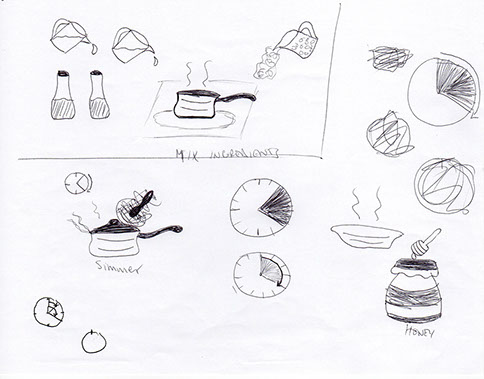 MIX INGREDIENTS
Simmer
HONEY